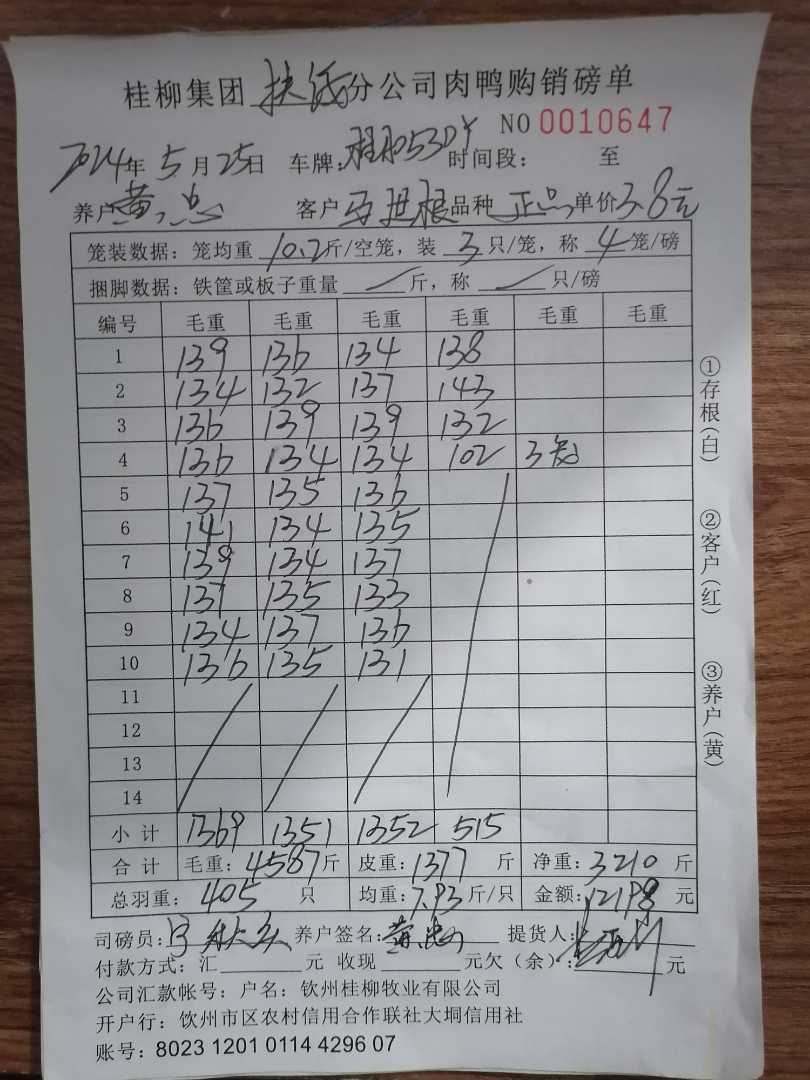 桂柳集团 分公司肉鸭购销磅单
NO 0010647
2024年 5月 25日 车牌: 时间段: 至
养户 黄 忠 客户 品种 正品 单价 3.8元
笼装数据: 笼均重 10.2 斤/空笼, 装 3 只/笼, 称 4 笼/磅
捆脚数据: 铁筐或板子重量 斤, 称 只/磅
编号 毛重 毛重 毛重 毛重 毛重 毛重
1 139 136 134 138
2 134 132 137 143
3 136 139 139 132
4 136 134 134 102 3
5 137 135 136
6 141 134 135
7 139 134 137
8 137 135 133
9 134 137 136
10 136 135 131
11
12
13
14
小计 1369 1351 1352 515
合计 毛重: 4587斤 皮重: 1377 斤 净重: 3210 斤
总羽重: 405 只 均重: 7.93斤/只 金额: 12198 元
司磅员: 养户签名: 黄忠 提货人:
付款方式: 汇 元 收现 元欠(余): 元
公司汇款帐号: 户名: 钦州桂柳牧业有限公司
开户行: 饮州市区农村信用合作联社大垌信用社
账号: 8023 1201 0114 4296 07
①存根(白)
②客户(红)
③养户(黄)